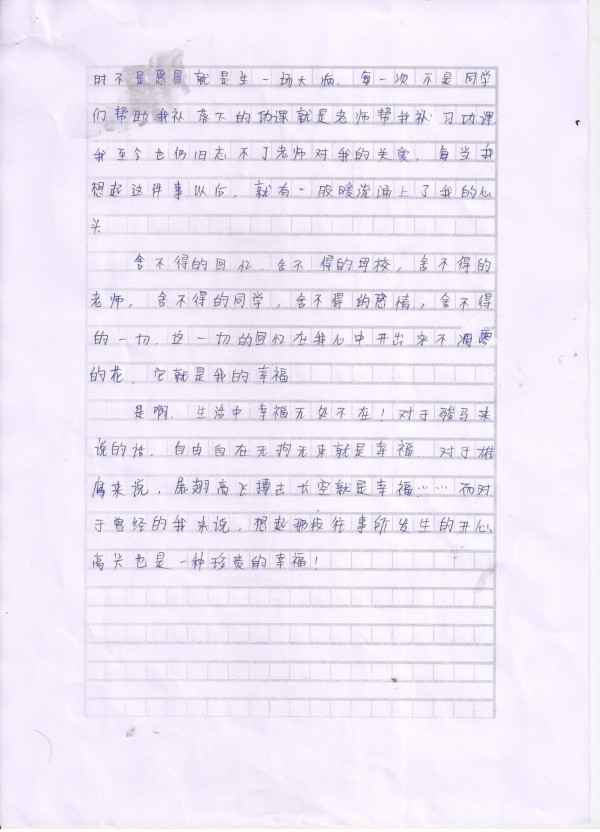 时不是感冒就是生一场大病，每一次不是同学
们帮助我补落下的功课就是老师帮我补习功课
我至今也仍旧忘不了老师对我的关爱，每当我
想起这件事以后，就有一股暖流涌上了我的心
头
舍不得的回忆，舍不得的母校，舍不得的
老师，舍不得的同学，舍不得的感情，舍不得
的一切，这一切的回忆在我心中开出来不凋零
的花，它就是我的幸福
是啊，生活中幸福无处不在！对于骏马来
说的话，自由自在无拘无束就是幸福，对于雄
鹰来说，展翅高飞搏击长空就是幸福……而对
于曾经的我来说，想起那段往事所发生的开心
离关也是一种珍贵的幸福！